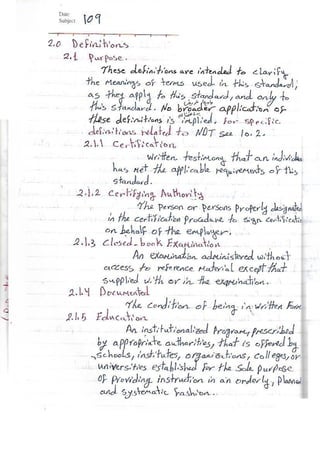 Date:
Subject: 109
2.0 Definitions
2.1 Purpose.
These definitions are intended to clarify
the Meanings of terms used in this standard,
as they apply to this standard, and only to
this standard. No broader application of
these definitions is implied, for specific
definitions related to NDT see 10.2.
2.1.1 Certification.
Written testimony that an individual
has met the applicable requirements of this
standard.
2.1.2 Certifying Authority
The Person or Persons Properly designated
in the certification procedure to sign certificatio
on behalf of the employer.
2.1.3 Closed-book Examination
An examination administered without
access to reference Material except that
supplied with or in the examination.
2.1.4 Documented
The condition of being in written Form
2.1.5 Education
An institutionalized Program, Prescribed
by appropriate authorities, that is offered by
schools, institutes, organizations, colleges, or
universities established for the Sole purpose
OF Providing instruction in an orderly, Planned
and systematic fashion.